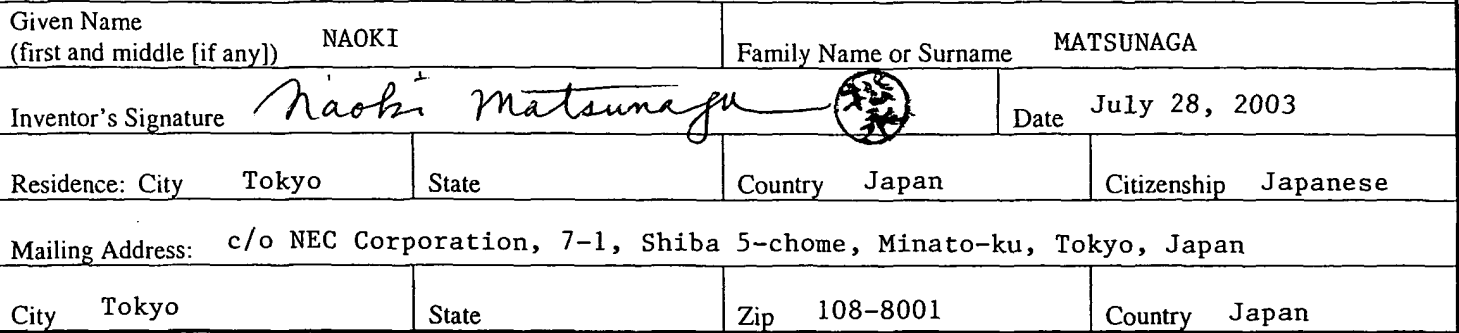 Given Name
(first and middle [if any]) NAOKI Family Name or Surname MATSUNAGA
Inventor's Signature Naoki Matsunaga 松永 Date July 28, 2003
Residence: City Tokyo State Country Japan Citizenship Japanese
Mailing Address: c/o NEC Corporation, 7-1, Shiba 5-chome, Minato-ku, Tokyo, Japan
City Tokyo State Zip 108-8001 Country Japan